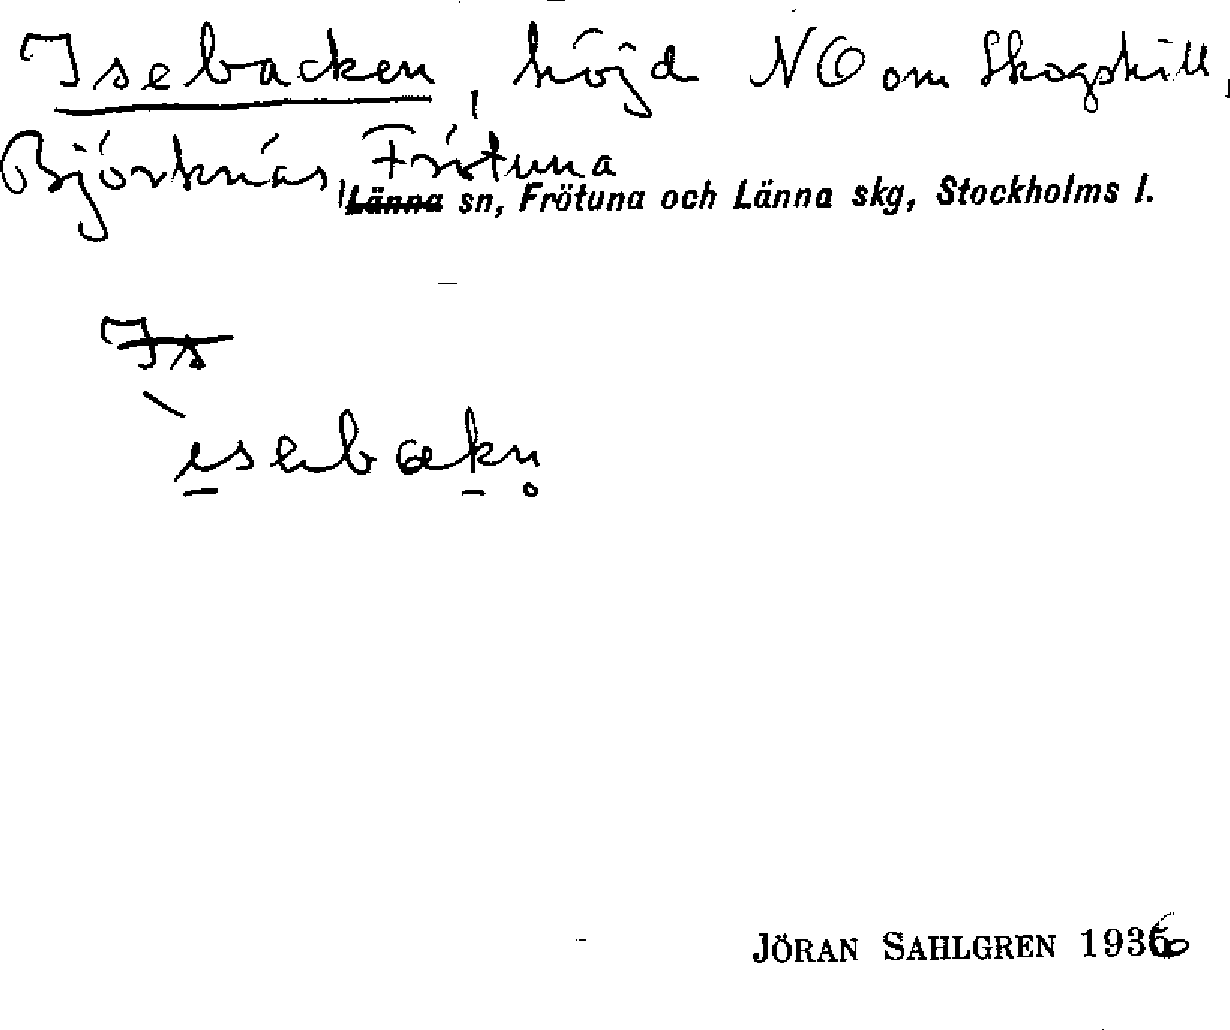 Isebacken, höjd NO om Skogskill,
Björknäs, Frötuna
~~Länna~~ sn, Frötuna och Länna skg, Stockholms l.
~~Is~~
ìsebakn̥
JÖRAN SAHLGREN 1936